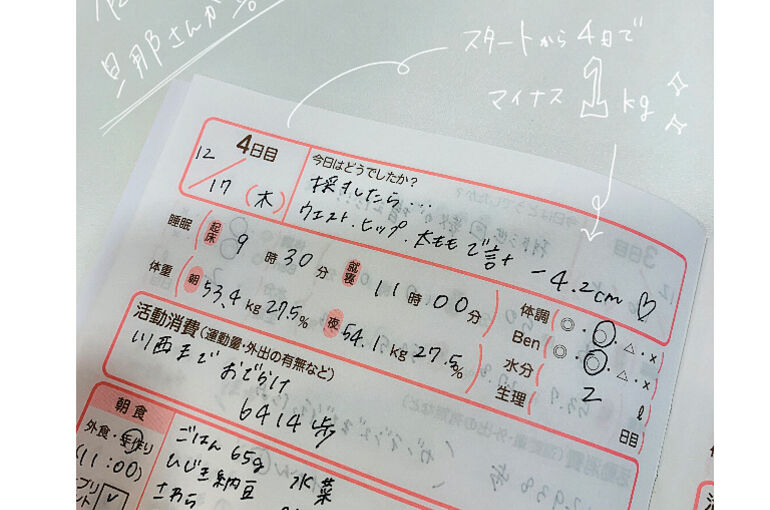 旦那さんが
スタートから4日で
マイナス 1 kg
4日目
12/17(木)
今日はどうでしたか?
採寸したら...
ウエスト・ヒップ・太ももで計 -4.2cm ♡
睡眠 起床 9時30分 就寝 11時00分
体重 朝 53.4kg 27.5% 夜 54.1kg 27.5%
体調 ◎・○・△・×
Ben ◎・○・△・×
水分 2 ℓ
生理 日目
活動消費(運動量・外出の有無など)
川西までおでかけ
6414歩
朝食
外食・手作り
(11:00)
ごはん 65g
ひじき納豆 水菜
さわら
3日目